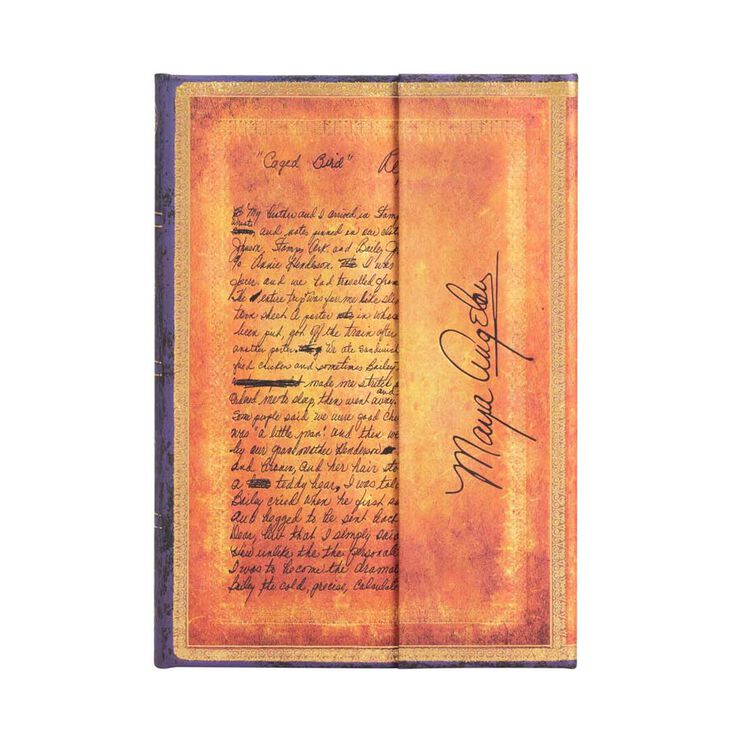 "Caged Bird" Re
My brother and I arrived in Stamp
and notes pinned in our clot
Johnson, Stamps Ark. and Bailey Jo
℅ Annie Henderson. I was
four and we had travelled from
The entire trip was for me like
tern sheet. A porter in whose
been put, got off the train after
another porter. We ate Sandwich
fried chicken and sometimes Bailey
made me stretch
ordered me to sleep, then went away. and
Some people said we were good Chi
was "a little man" and then we
by our grandmother Henderson
and brown, and her hair sto
a teddy bear, I was told
Bailey cried when he first s
and begged to be sent back
Dear, but that I simply said
unlike the the personali
I was to become the dramat
Bailey the cold, precise, Calculat
Maya Angelou